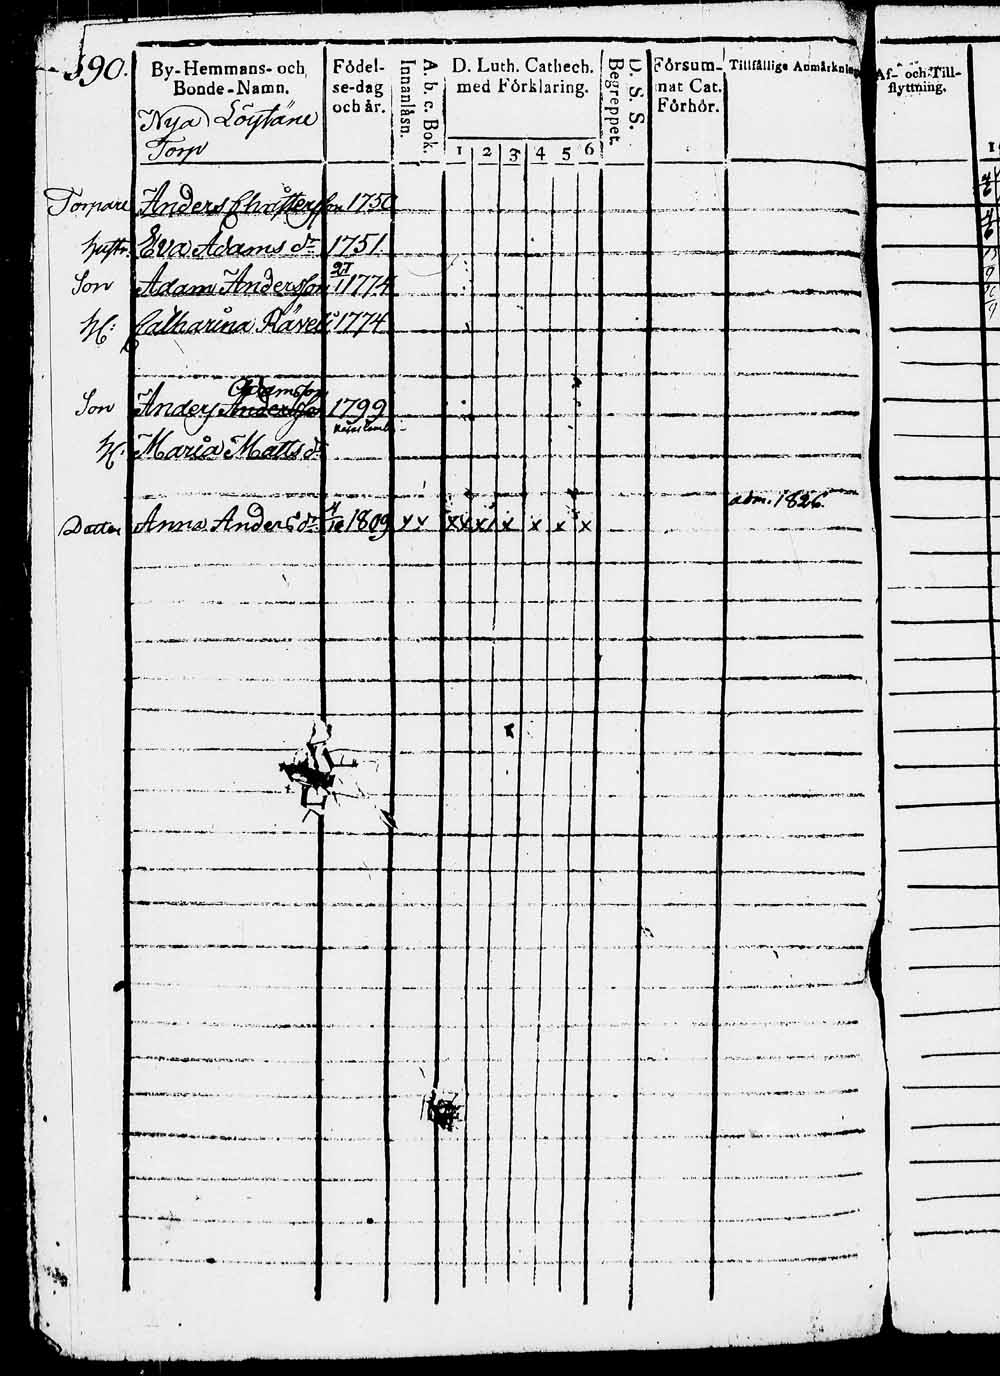 390.
By-Hemmans- och Bonde-Namn.
Födel-se-dag och år.
A. b. c. Bok. Innanläsn.
D. Luth. Cathech. med Förklaring.
1 2 3 4 5 6
D. S. S. Begreppet.
Försum-nat Cat. Förhör.
Tillfällige Anmärkning
Af- och Till-flyttning.
Nya Löytäne
Torp
Torpare Anders Christersson 1750
hustr. Eva Adams dr 1751.
Son Adam Andersson 21/1 1774
H: Catharina Räveli 1774
Adamsson
Son Anders Andersson 1799
H. Maria Matts dr
adm. 1826.
Dotter Anna Anders dr 4/12 1809 x x x x x x x x x x